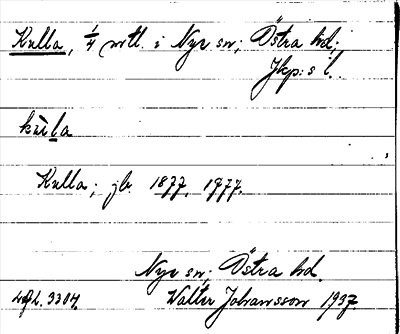 Kulla, 1/4 mtl. i Nye sn; Östra hd;
Jkp:s l.
kùla
Kulla; jb. 1877, 1977.
Nye sn; Östra hd.
3304.
Walter Johansson 1937.